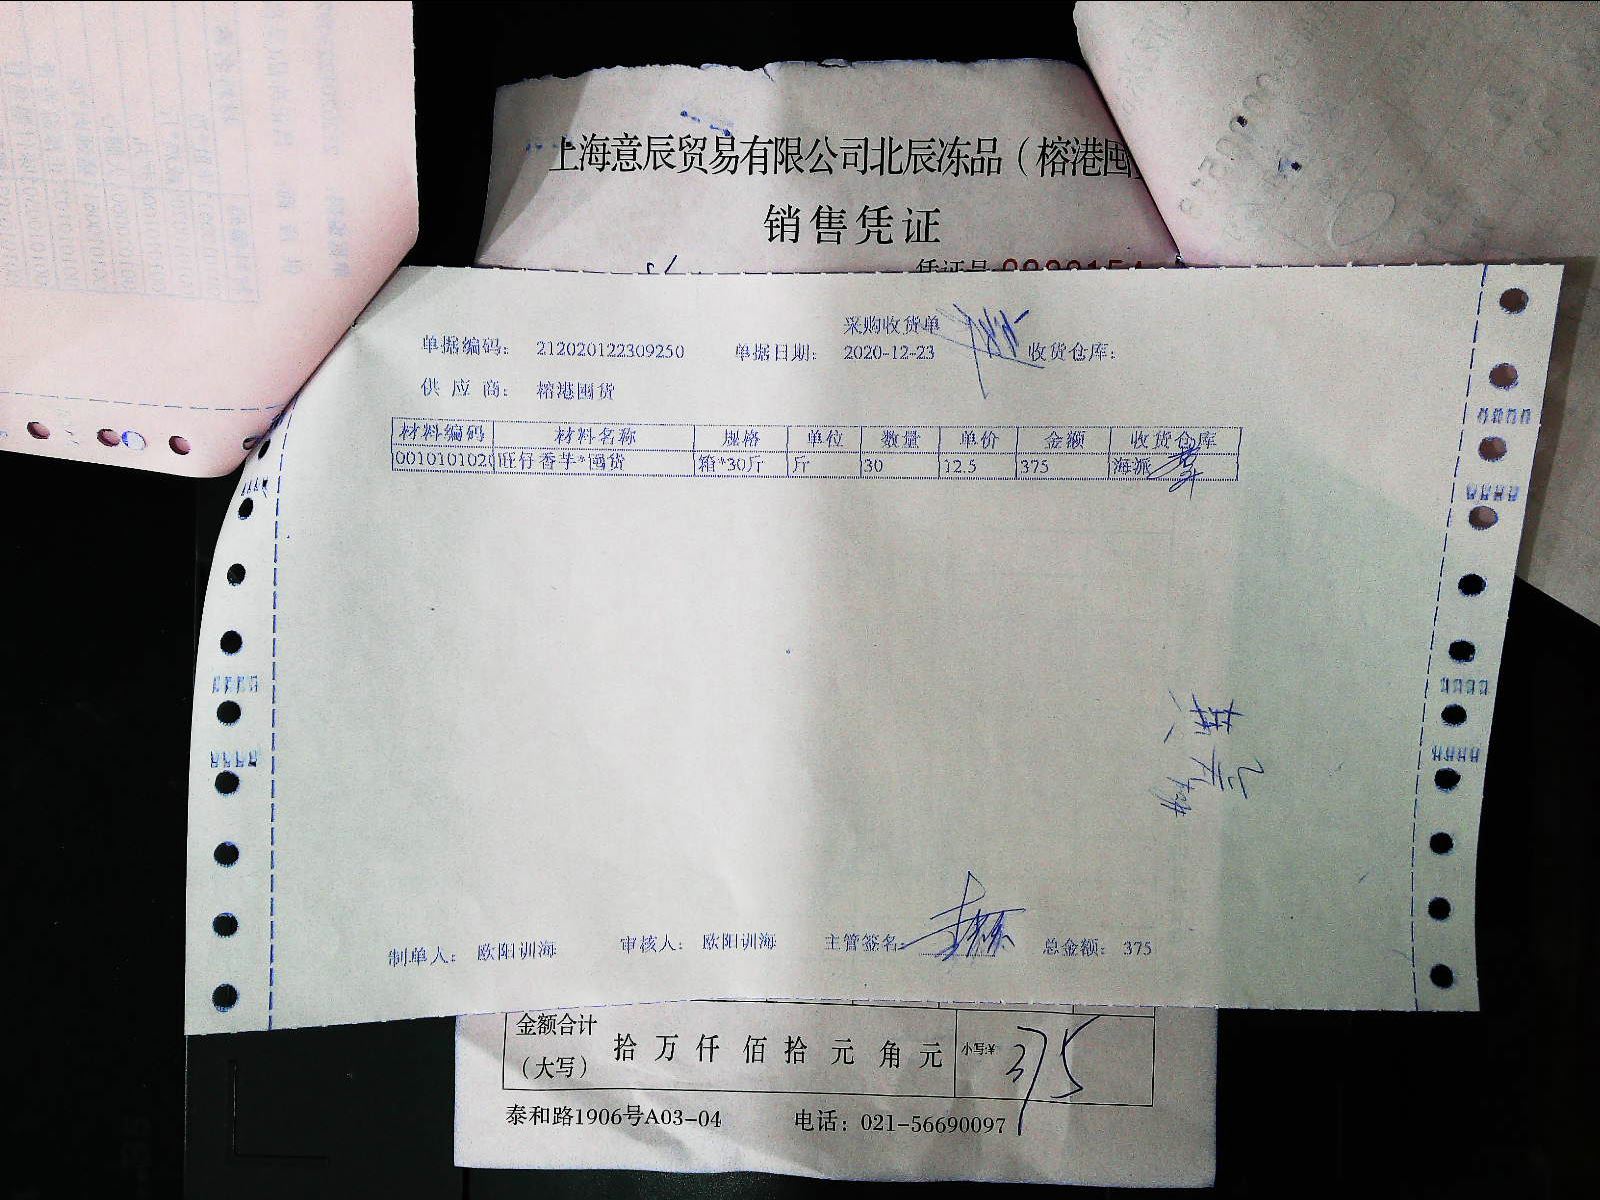 上海意辰贸易有限公司北辰冻品（榕港囤
销售凭证
凭证号
采购收货单
单据编码： 212020122309250 单据日期： 2020-12-23 收货仓库：
供 应 商： 榕港囤货
材料编码 材料名称 规格 单位 数量 单价 金额 收货仓库
0010101020 旺仔香芋*囤货 箱*30斤 斤 30 12.5 375 海派
制单人： 欧阳训海 审核人： 欧阳训海 主管签名： 总金额： 375
金额合计
（大写） 拾 万 仟 佰 拾 元 角 元 小写:¥ 375
泰和路1906号A03-04 电话：021-56690097